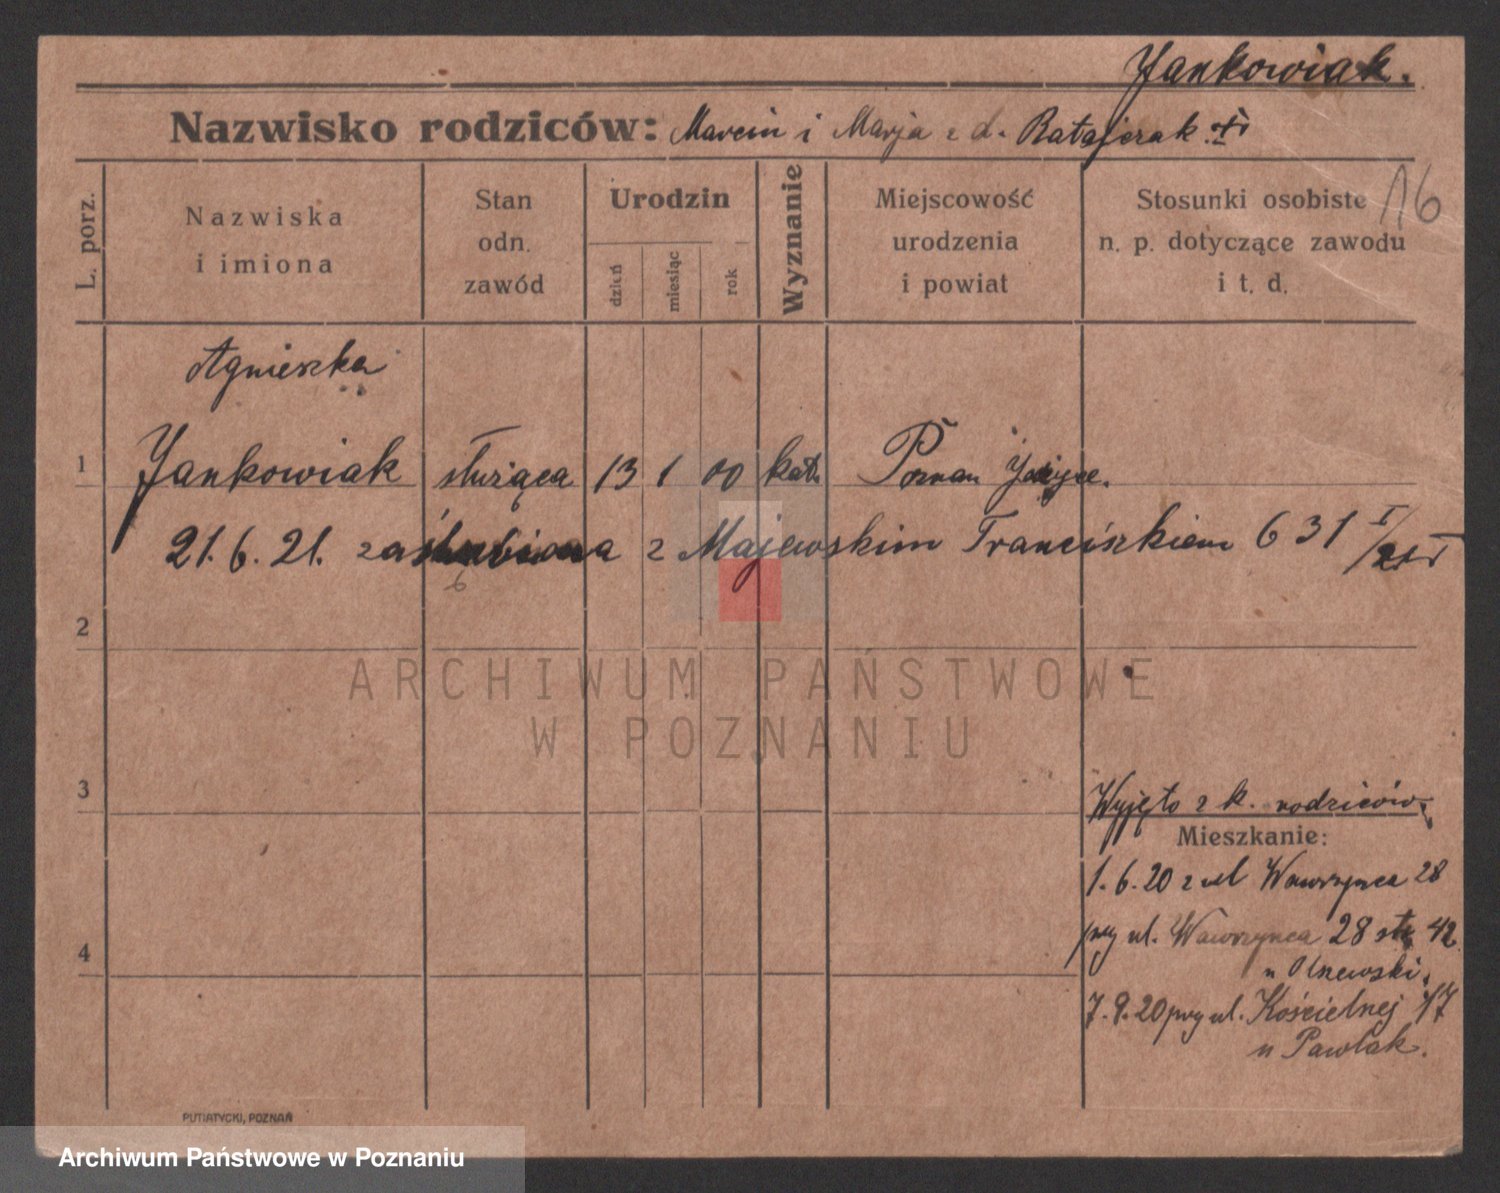 Jankowiak.
Nazwisko rodziców: Marcin i Marja z d. Ratajczak.
16
L. porz.
Nazwiska i imiona
Stan odn. zawód
Urodzin
dzień
miesiąc
rok
Wyznanie
Miejscowość urodzenia i powiat
Stosunki osobiste n. p. dotyczące zawodu i t. d.
Agnieszka
1 Jankowiak służąca 13 1 00 kat. Poznań Jeżyce.
21.6.21. zaślubiona z Majewskim Franciszkiem 631 I/21
2
ARCHIWUM PAŃSTWOWE
W POZNANIU
3
Wyjęto z k. rodziców.
Mieszkanie:
1.6.20 z ul Wawrzynca 28
przy ul. Wawrzynca 28 42
4
u
7.9.20 przy ul. Kościelnej 17
u Pawlak.
PUTIATYCKI, POZNAŃ
Archiwum Państwowe w Poznaniu